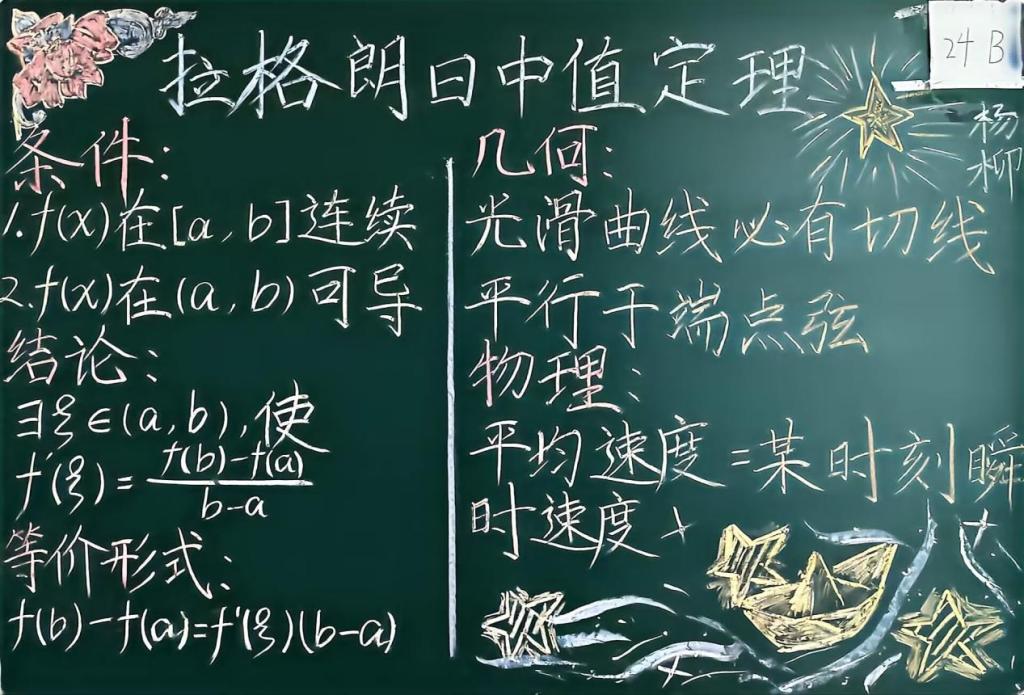 拉格朗日中值定理
24 B
杨柳
条件:
1.f(x)在[a,b]连续
2.f(x)在(a,b)可导
结论:
∃ξ∈(a,b),使
f'(ξ)=\frac{f(b)-f(a)}{b-a}
等价形式:
f(b)-f(a)=f'(ξ)(b-a)
几何:
光滑曲线必有切线
平行于端点弦
物理:
平均速度=某时刻瞬
时速度